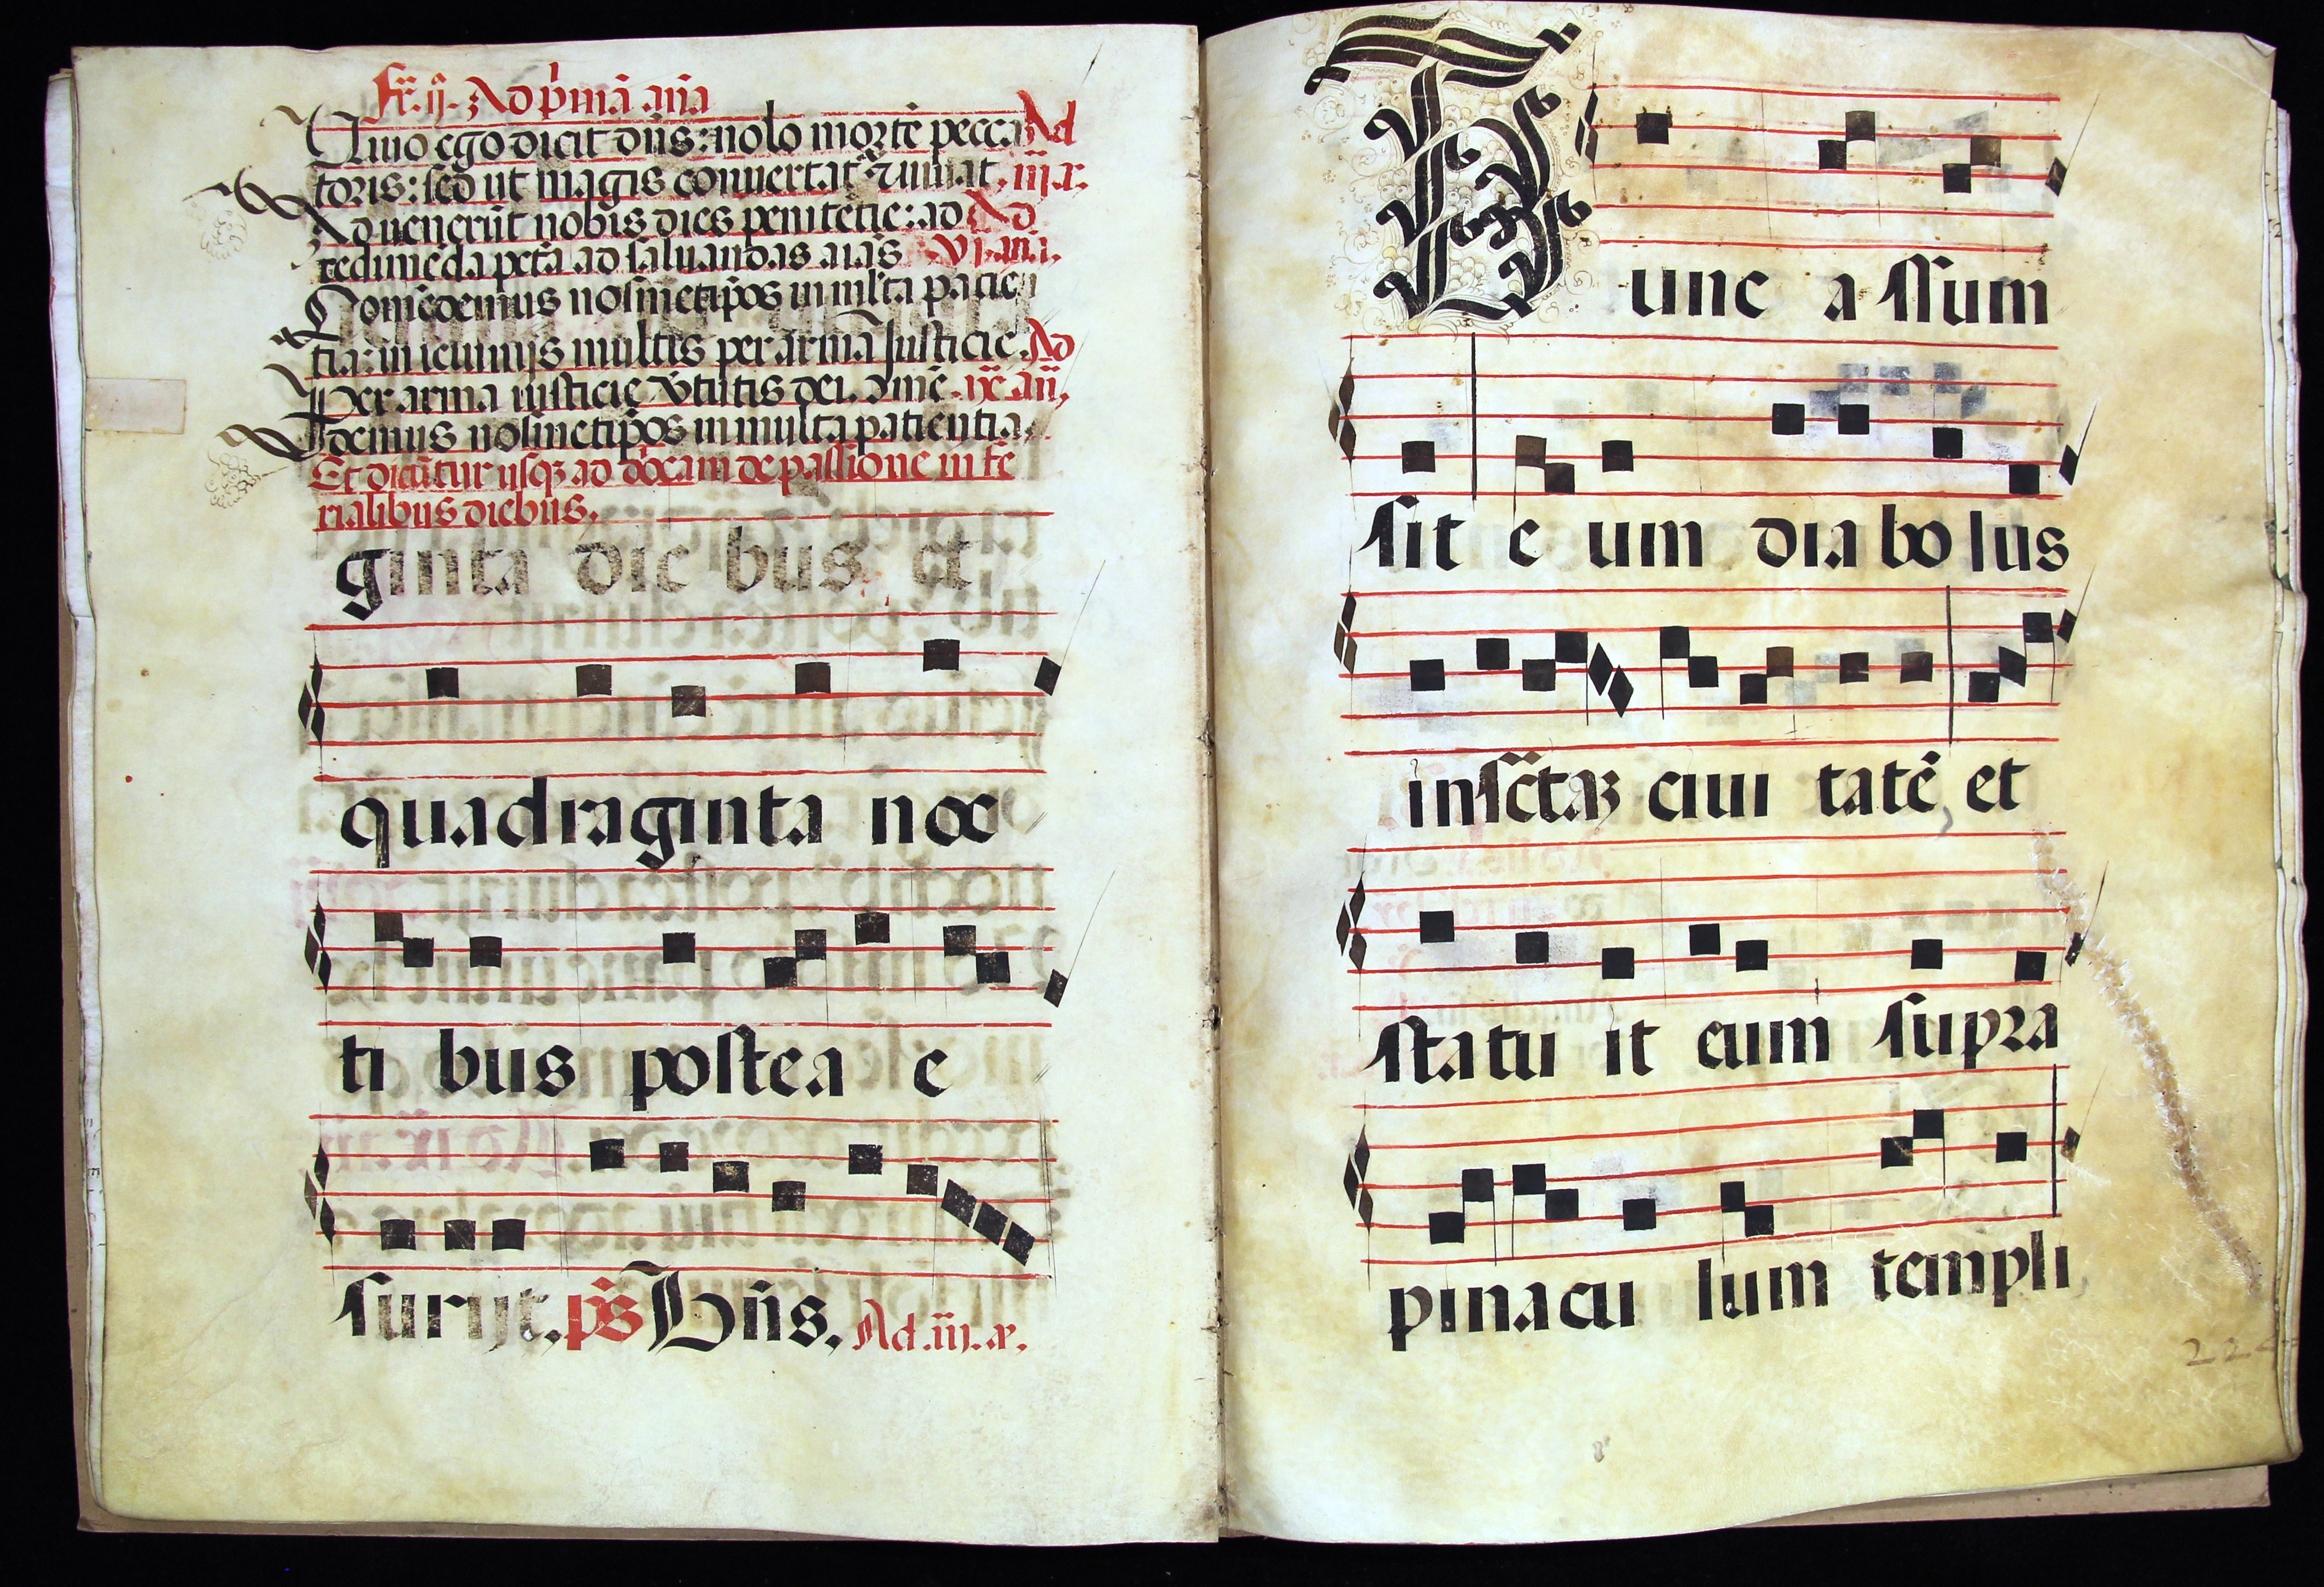 fr̄. ij. Ad p̄mā an̄a
Viuo ego dicit dn̄s: nolo mortē pecca Ad
toris: sed ut magis conuertat̄ ⁊ uiuat. iij. a.
Aduenerūt nobis dies penitētie: ad Ad
redimēda pctā ad saluandas aīas VI. an̄a.
Comēdemus nosmetip̄os in ml̄ta pacien
tia: in ieiunijs multis per arma Justicie. Ad
Per arma iusticie v̄tutis dei. ix. an̄.
demus nosmetip̄os in multa patientia.
Et dicūtur usq; ad dōcam de passione in fe
rialibus diebus.
ginta die bus et
quadraginta noc
ti bus postea e
surijt. p̄s Dn̄s. Ad .iij. a.
Tunc a ssum
sit e um diabolus
in sc̄taz ciui tatē et
statu it eum supra
pinacu lum templi